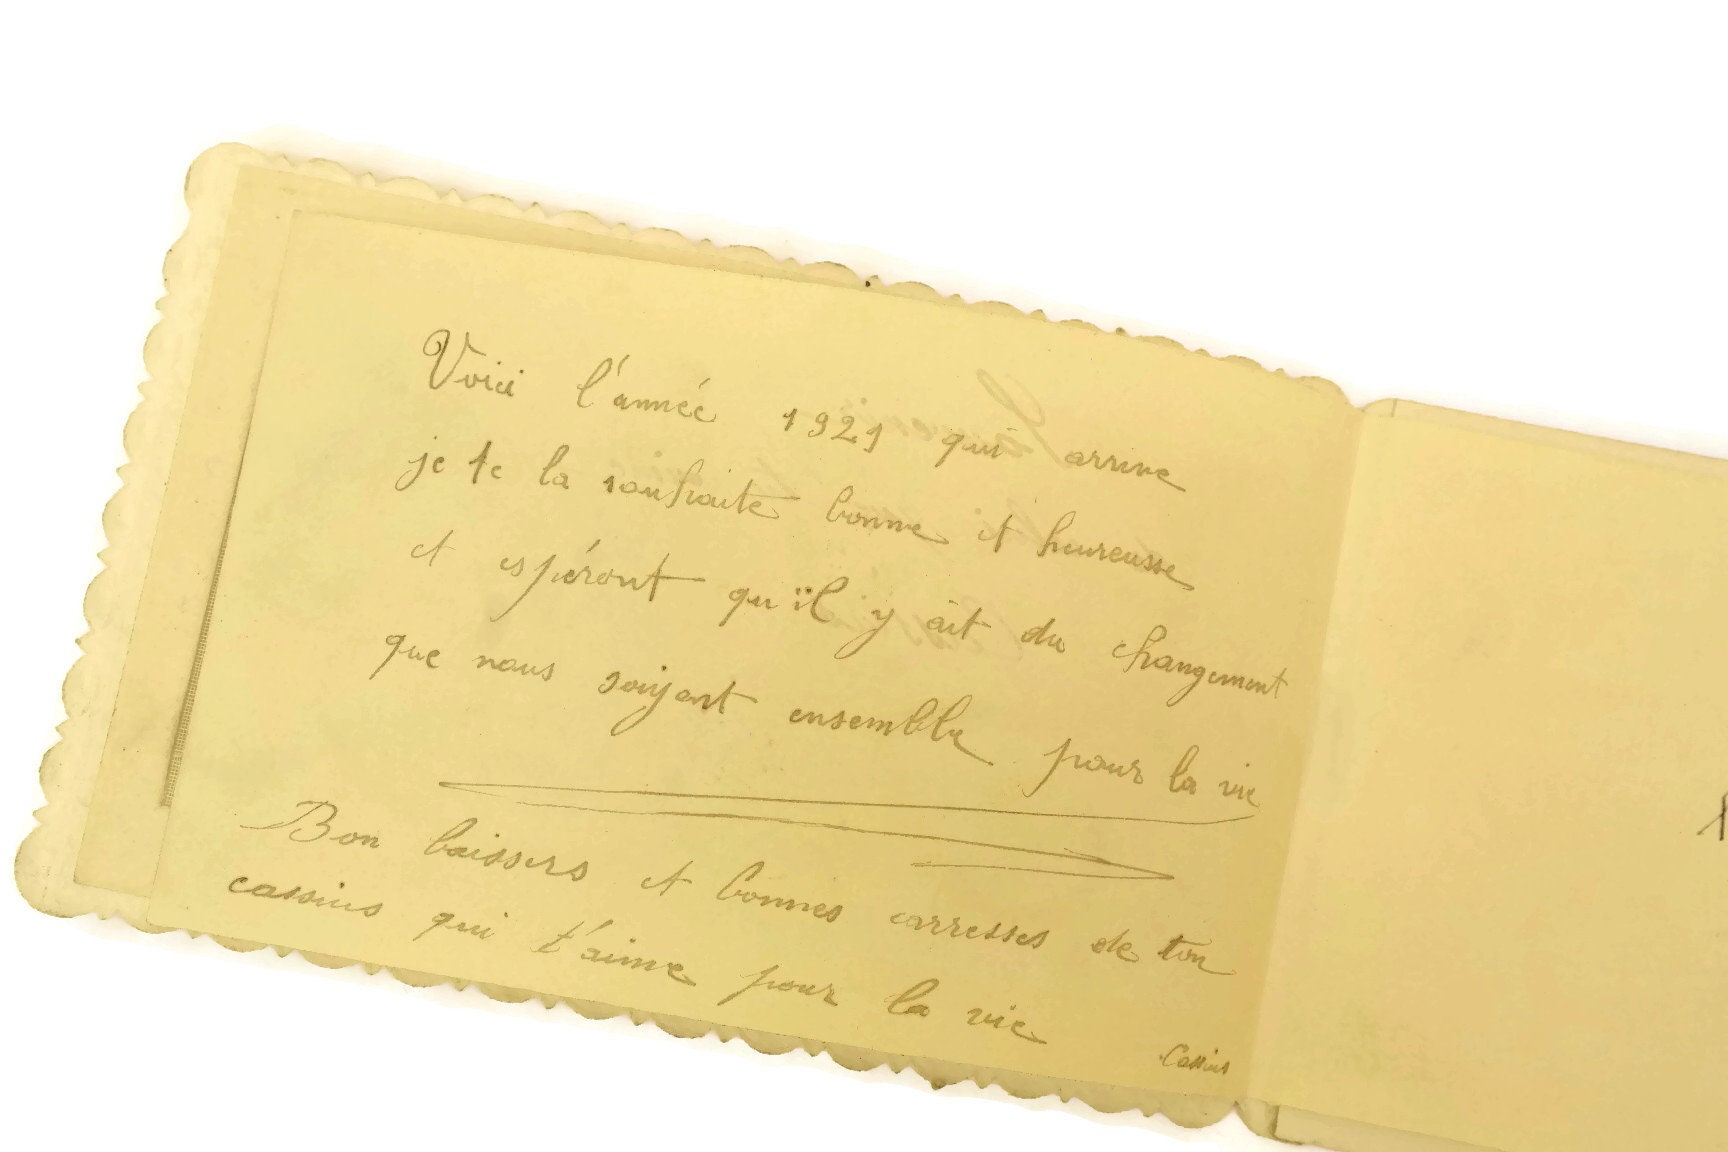 Voici l'année 1921 qui arrive
je te la souhaite bonne et heureusse
et espéront qu'il y ait du changement
que nous soiyent ensemble pour la vie
Bon baissers et bonnes carresses de ton
cassius qui t'aime pour la vie
Cassius